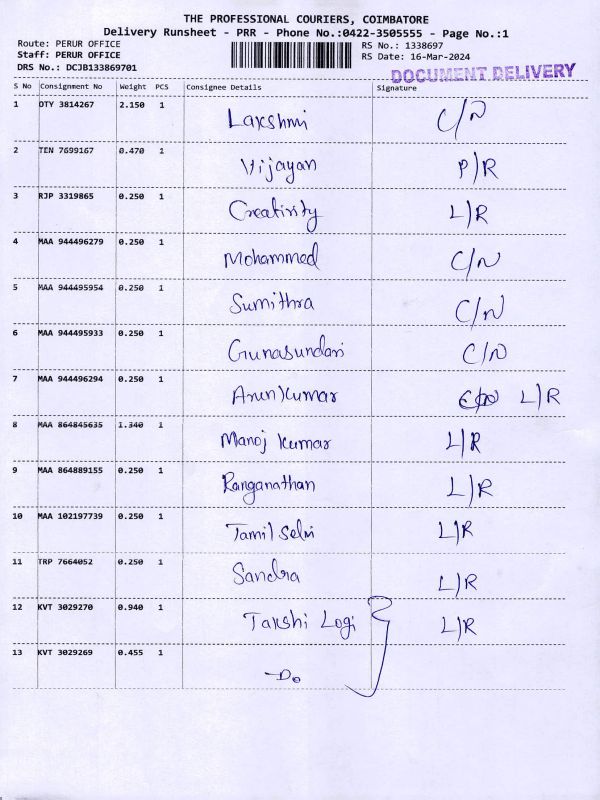 THE PROFESSIONAL COURIERS, COIMBATORE
Delivery Runsheet - PRR - Phone No.:0422-3505555 - Page No.:1
Route: PERUR OFFICE RS No.: 1338697
Staff: PERUR OFFICE RS Date: 16-Mar-2024
DRS No.: DCJB133869701 DOCUMENT DELIVERY
S No Consignment No Weight PCS Consignee Details Signature
1 DTY 3814267 2.150 1 Lakshmi C/N
2 TEN 7699167 0.470 1 Vijayan P/R
3 RJP 3319865 0.250 1 Creativity L/R
4 MAA 944496279 0.250 1 Mohammed C/N
5 MAA 944495954 0.250 1 Sumithra C/N
6 MAA 944495933 0.250 1 Gunasundari C/N
7 MAA 944496294 0.250 1 Arun Kumar C/N L/R
8 MAA 864845635 1.340 1 Manoj Kumar L/R
9 MAA 864889155 0.250 1 Ranganathan L/R
10 MAA 102197739 0.250 1 Tamil Selvi L/R
11 TRP 7664052 0.250 1 Sandra L/R
12 KVT 3029270 0.940 1 Takshi Logi L/R
13 KVT 3029269 0.455 1 -Do